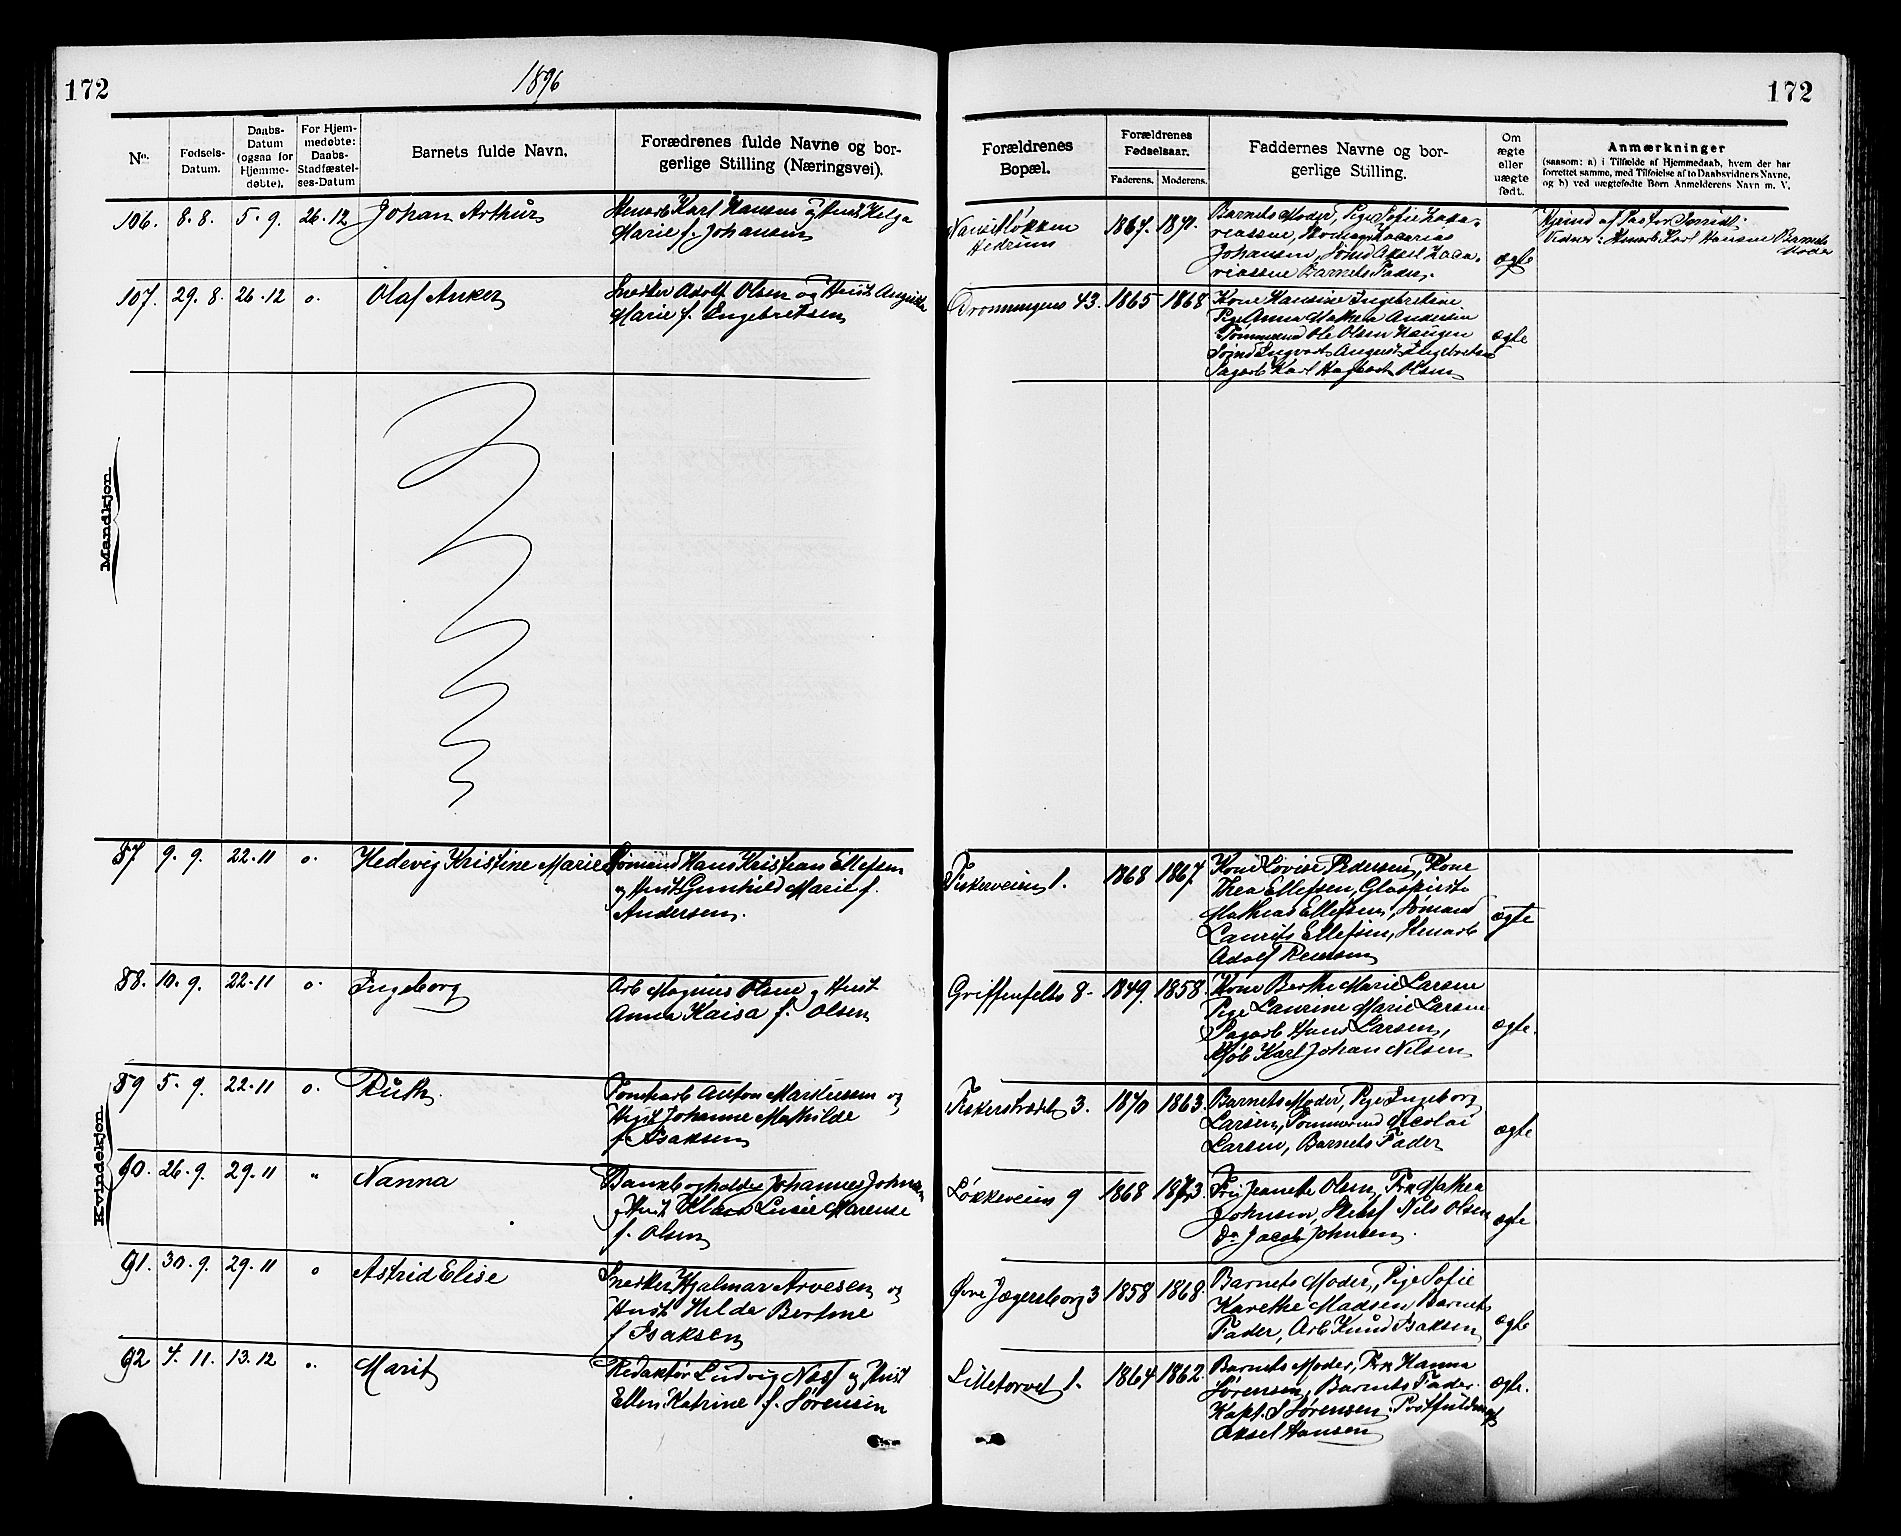 172
1896
172
No.
Fødsels-
Datum.
Daabs-
Datum
(ogsaa for
Hjemme-
døbte).
For Hjem-
medøbte:
Daabs-
Stadfæstel-
ses-Datum
Barnets fulde Navn.
Forædrenes fulde Navne og bor-
gerlige Stilling (Næringsvei).
Forældrenes
Bopæl.
Forældrenes
Fødselsaar.
Faderens.
Moderens.
Faddernes Navne og bor-
gerlige Stilling.
Om
ægte
eller
uægte
født.
Anmærkninger
(saasom: a) i Tilfælde af Hjemmedaab, hvem der har
forrettet samme, med Tilføielse af to Daabsvidners Navne,
og b) ved uægtefødte Børn Anmelderens Navn m. V.
Mandkjøn
106. 8. 8. 5. 9. 26. 12 Johan Arthur
Karl Hansen og Hust Helga
Marie f. Johansen
Hedrum
1867. 1871.
Barnets Moder, Pige Sofie Zaka-
riassen, Zacarias
Johansen, Sømd Aksel Zaca-
riassen Barnets Fader.
ægte
Hjemd af Pastor
Vidner: Karl Hansen Barnets
Moder
107. 29. 8. 26. 12 o. Olaf Anker
Snekker Adolf Olsen og Hust Augusta
Marie f. Ingebretsen
Dronningens 43. 1865 1868
Kone Hansine Ingebretsen
Pige Anna Mathea Andersen
Tømmermd Ole Olsen Haugen
Sømd Ingvart August Ingebretsen
Sagarb Karl Olsen
ægte
Kvindekjøn
87 9. 9. 22. 11 o. Hedevig Kristine Marie
Sømand Hans Kristian Ellefsen
og Hust Gunhild Marie f.
Andersen.
Fiskerveien 1. 1868 1867.
Kone Lovise Pedersen, Kone
Thea Ellefsen,
Mathias Ellefsen, Sømand
Laurits Ellefsen,
Adolf
ægte
88. 10. 9. 22. 11 o. Ingeborg
Arb Magnus Olsen og Hust
Anna Kaisa f. Olsen
Griffenfelts 8. 1849. 1858.
Kone Berthe Marie Larsen
Pige Laurine Marie Larsen
Sagarb Hans Larsen,
Karl Johan Nilsen
ægte.
89 5. 9. 22. 11 o. Ruth
Anton Markussen og
Hust Johanne Mathilde
f. Isaksen
Fiskerstrædet 3. 1870 1863.
Barnets Moder, Pige Ingeborg
Larsen, Tømmermd Nicolai
Larsen, Barnets Fader
ægte
90. 26. 9. 29. 11 " Nanna
Bankbogholder Johannes Johnsen
og Hust Klara Lusie Marense
f. Olsen
Løkkeveien 9 1868 1873.
Fru Jeanette Olsen, Frk Mathea
Johnsen, Nils Olsen
Do Jacob Johnsen.
ægte
91. 30. 9. 29. 11 o Astrid Elise
Snekker Hjalmar Arvesen og
Hust Hilda Bertine
f Isaksen
Øvre Jægersborg 3 1858 1868.
Barnets Moder, Pige Sofie
Karethe Madsen, Barnets
Fader, Arb Knud Isaksen
ægte
92 4. 11. 13. 12 o. Marit
Redaktør Ludvig Næss og Hust
Ellen Katrine f. Sørensen
Lilletorvet 1. 1864 1862.
Barnets Moder, Frk Hanna
Sørensen, Barnets Fader.
Kapt. S Sørensen. Postfuldmægt
Aksel Hansen
ægte.